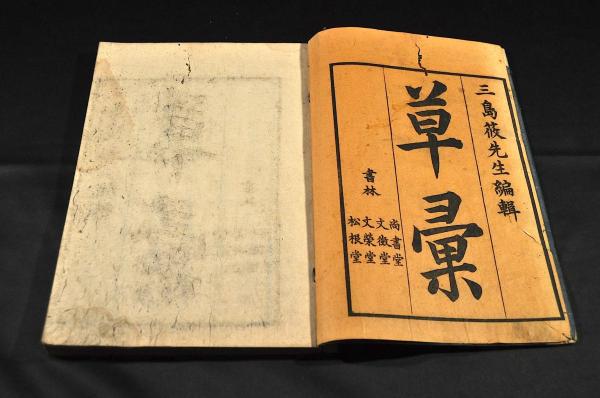 三島筱先生編輯
草彙
書林
尚書堂
文徴堂
文榮堂
松根堂